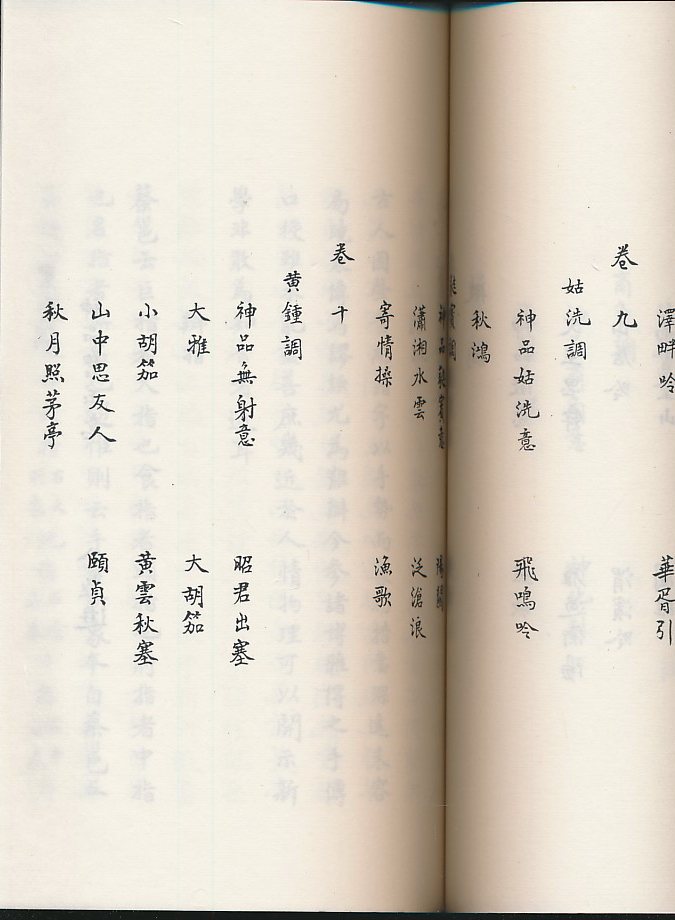 澤畔吟 華胥引
卷九
姑洗調
神品姑洗意 飛鳴吟
秋鴻
蕤賓調
神品蕤賓意
瀟湘水雲 泛滄浪
寄情操 漁歌
卷十
黃鍾調
神品無射意 昭君出塞
大雅 大胡笳
小胡笳 黃雲秋塞
山中思友人 頤貞
秋月照茅亭